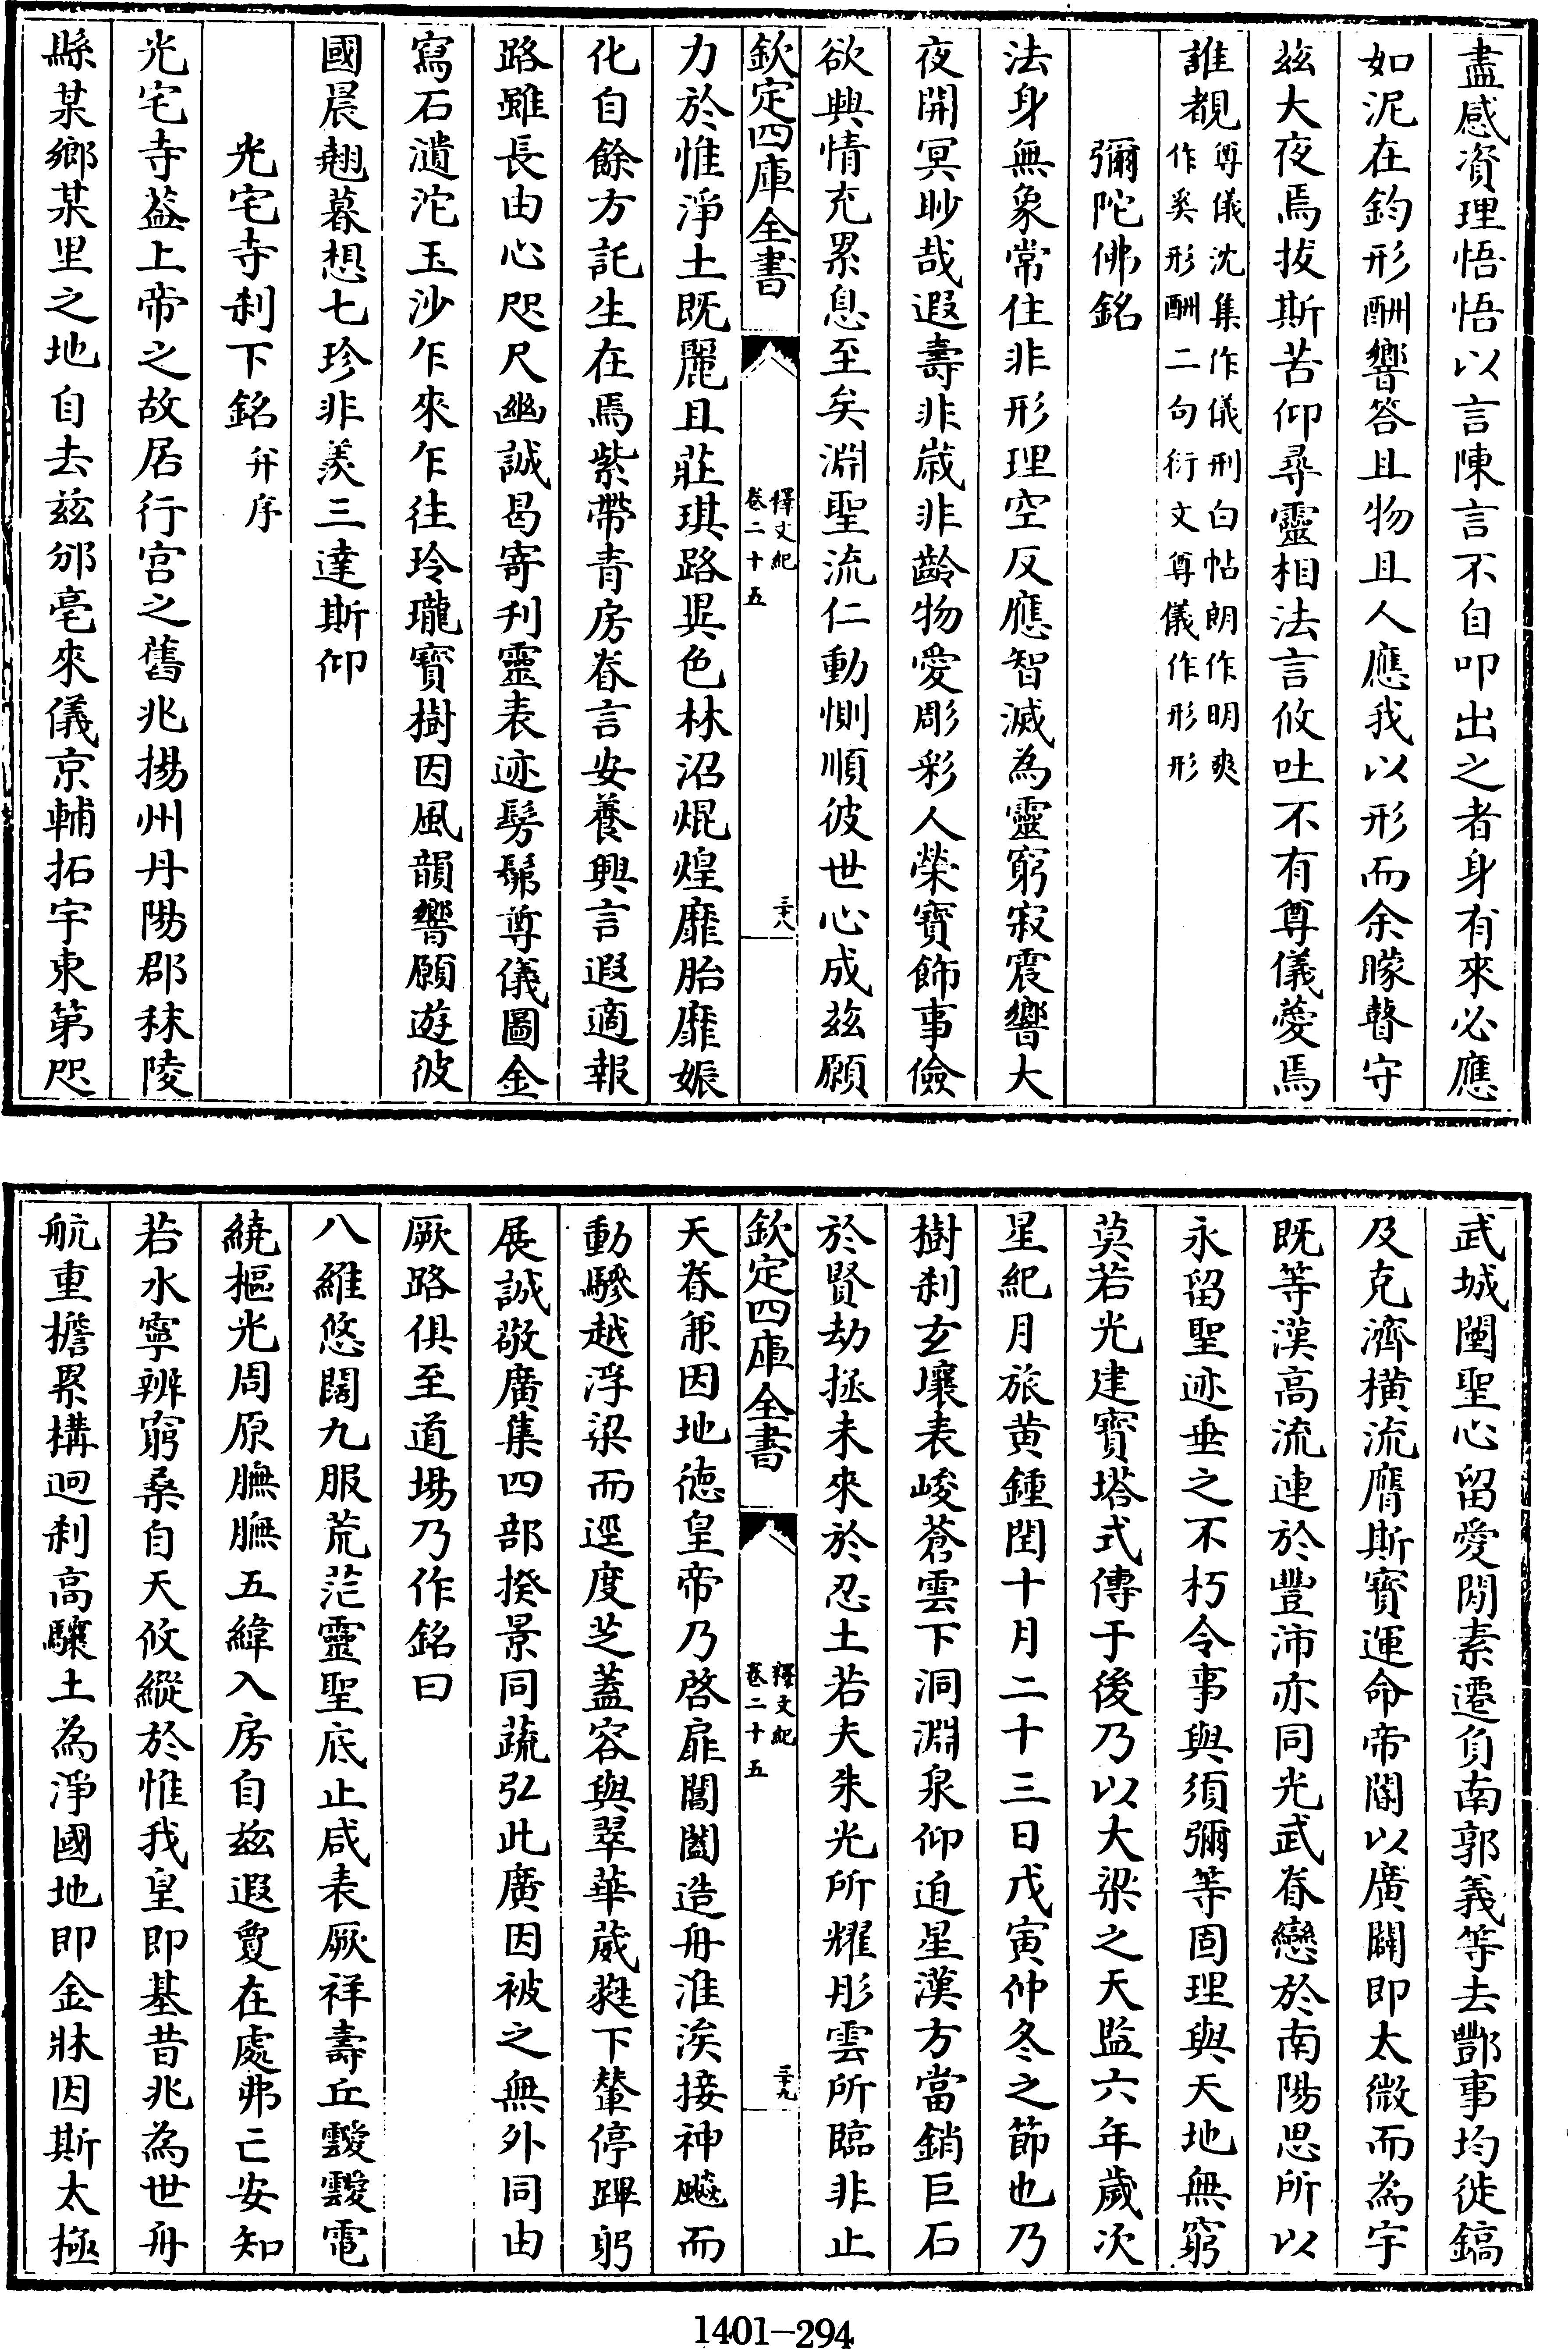 盡感資理悟悟以言陳言不自叩出之者身有來必應
如泥在鈞形酬響答且物且人應我以形而余矇瞽守
茲大夜焉拔斯苦仰尋靈相法言攸吐不有尊儀薆焉
誰覩尊儀沈集作儀刑白帖朗作明爽
作奚形酬二句衍文尊儀作形形
彌陀佛銘
法身無象常住非形理空反應智滅為靈窮寂震響大
夜開冥眇哉遐壽非歲非齡物愛彫彩人榮寶飾事儉
欲興情充累息至矣淵聖流仁動惻順彼世心成茲願
欽定四庫全書
釋文紀
卷二十五
三十八
力於惟淨土既麗且莊琪路異色林沼焜煌靡胎靡娠
化自餘方託生在焉紫帶青房眷言安養興言遐適報
路雖長由心咫尺幽誠曷寄刋靈表迹髣髴尊儀圖金
寫石瀆沱玉沙乍來乍往玲瓏寶樹因風韻響願遊彼
國晨翹暮想七珍非羨三達斯仰
光宅寺刹下銘并序
光宅寺葢上帝之故居行宫之舊兆揚州丹陽郡秣陵
縣某鄉某里之地自去茲邠亳來儀京輔拓宇東第咫
武城闉聖心留愛閒素遷負南郭義等去酆事均徙鎬
及克濟橫流膺斯寶運命帝閽以廣闢即太微而為宇
既等漢高流連於豐沛亦同光武眷戀於南陽思所以
永留聖迹垂之不朽令事與須彌等固理與天地無窮
莫若光建寶塔式傳于後乃以大梁之天監六年歲次
星紀月旅黄鍾閏十月二十三日戊寅仲冬之節也乃
樹刹玄壤表峻蒼雲下洞淵泉仰迫星漢方當銷巨石
於賢劫拯未來於忍土若夫朱光所耀彤雲所臨非止
欽定四庫全書
釋文紀
卷二十五
三十九
天眷兼因地德皇帝乃啓扉閶闔造舟淮涘接神飈而
動驂越浮梁而逕度芝蓋容與翠華葳蕤下輦停蹕躬
展誠敬廣集四部揆景同蔬弘此廣因被之無外同由
厥路俱至道場乃作銘曰
八維悠闊九服荒茫靈聖底止咸表厥祥壽丘靉靉電
繞樞光周原膴膴五緯入房自茲遐敻在處弗亡安知
若水寧辨窮桑自天攸縱於惟我皇即基昔兆為世舟
航重擔累構迥刹高驤土為淨國地即金牀因斯太極
1401-294